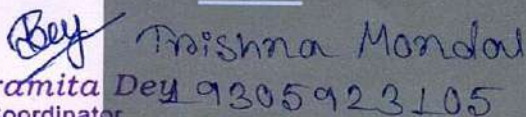 Dey Trishna Mondal
ramita Dey 9305923105
Coordinator